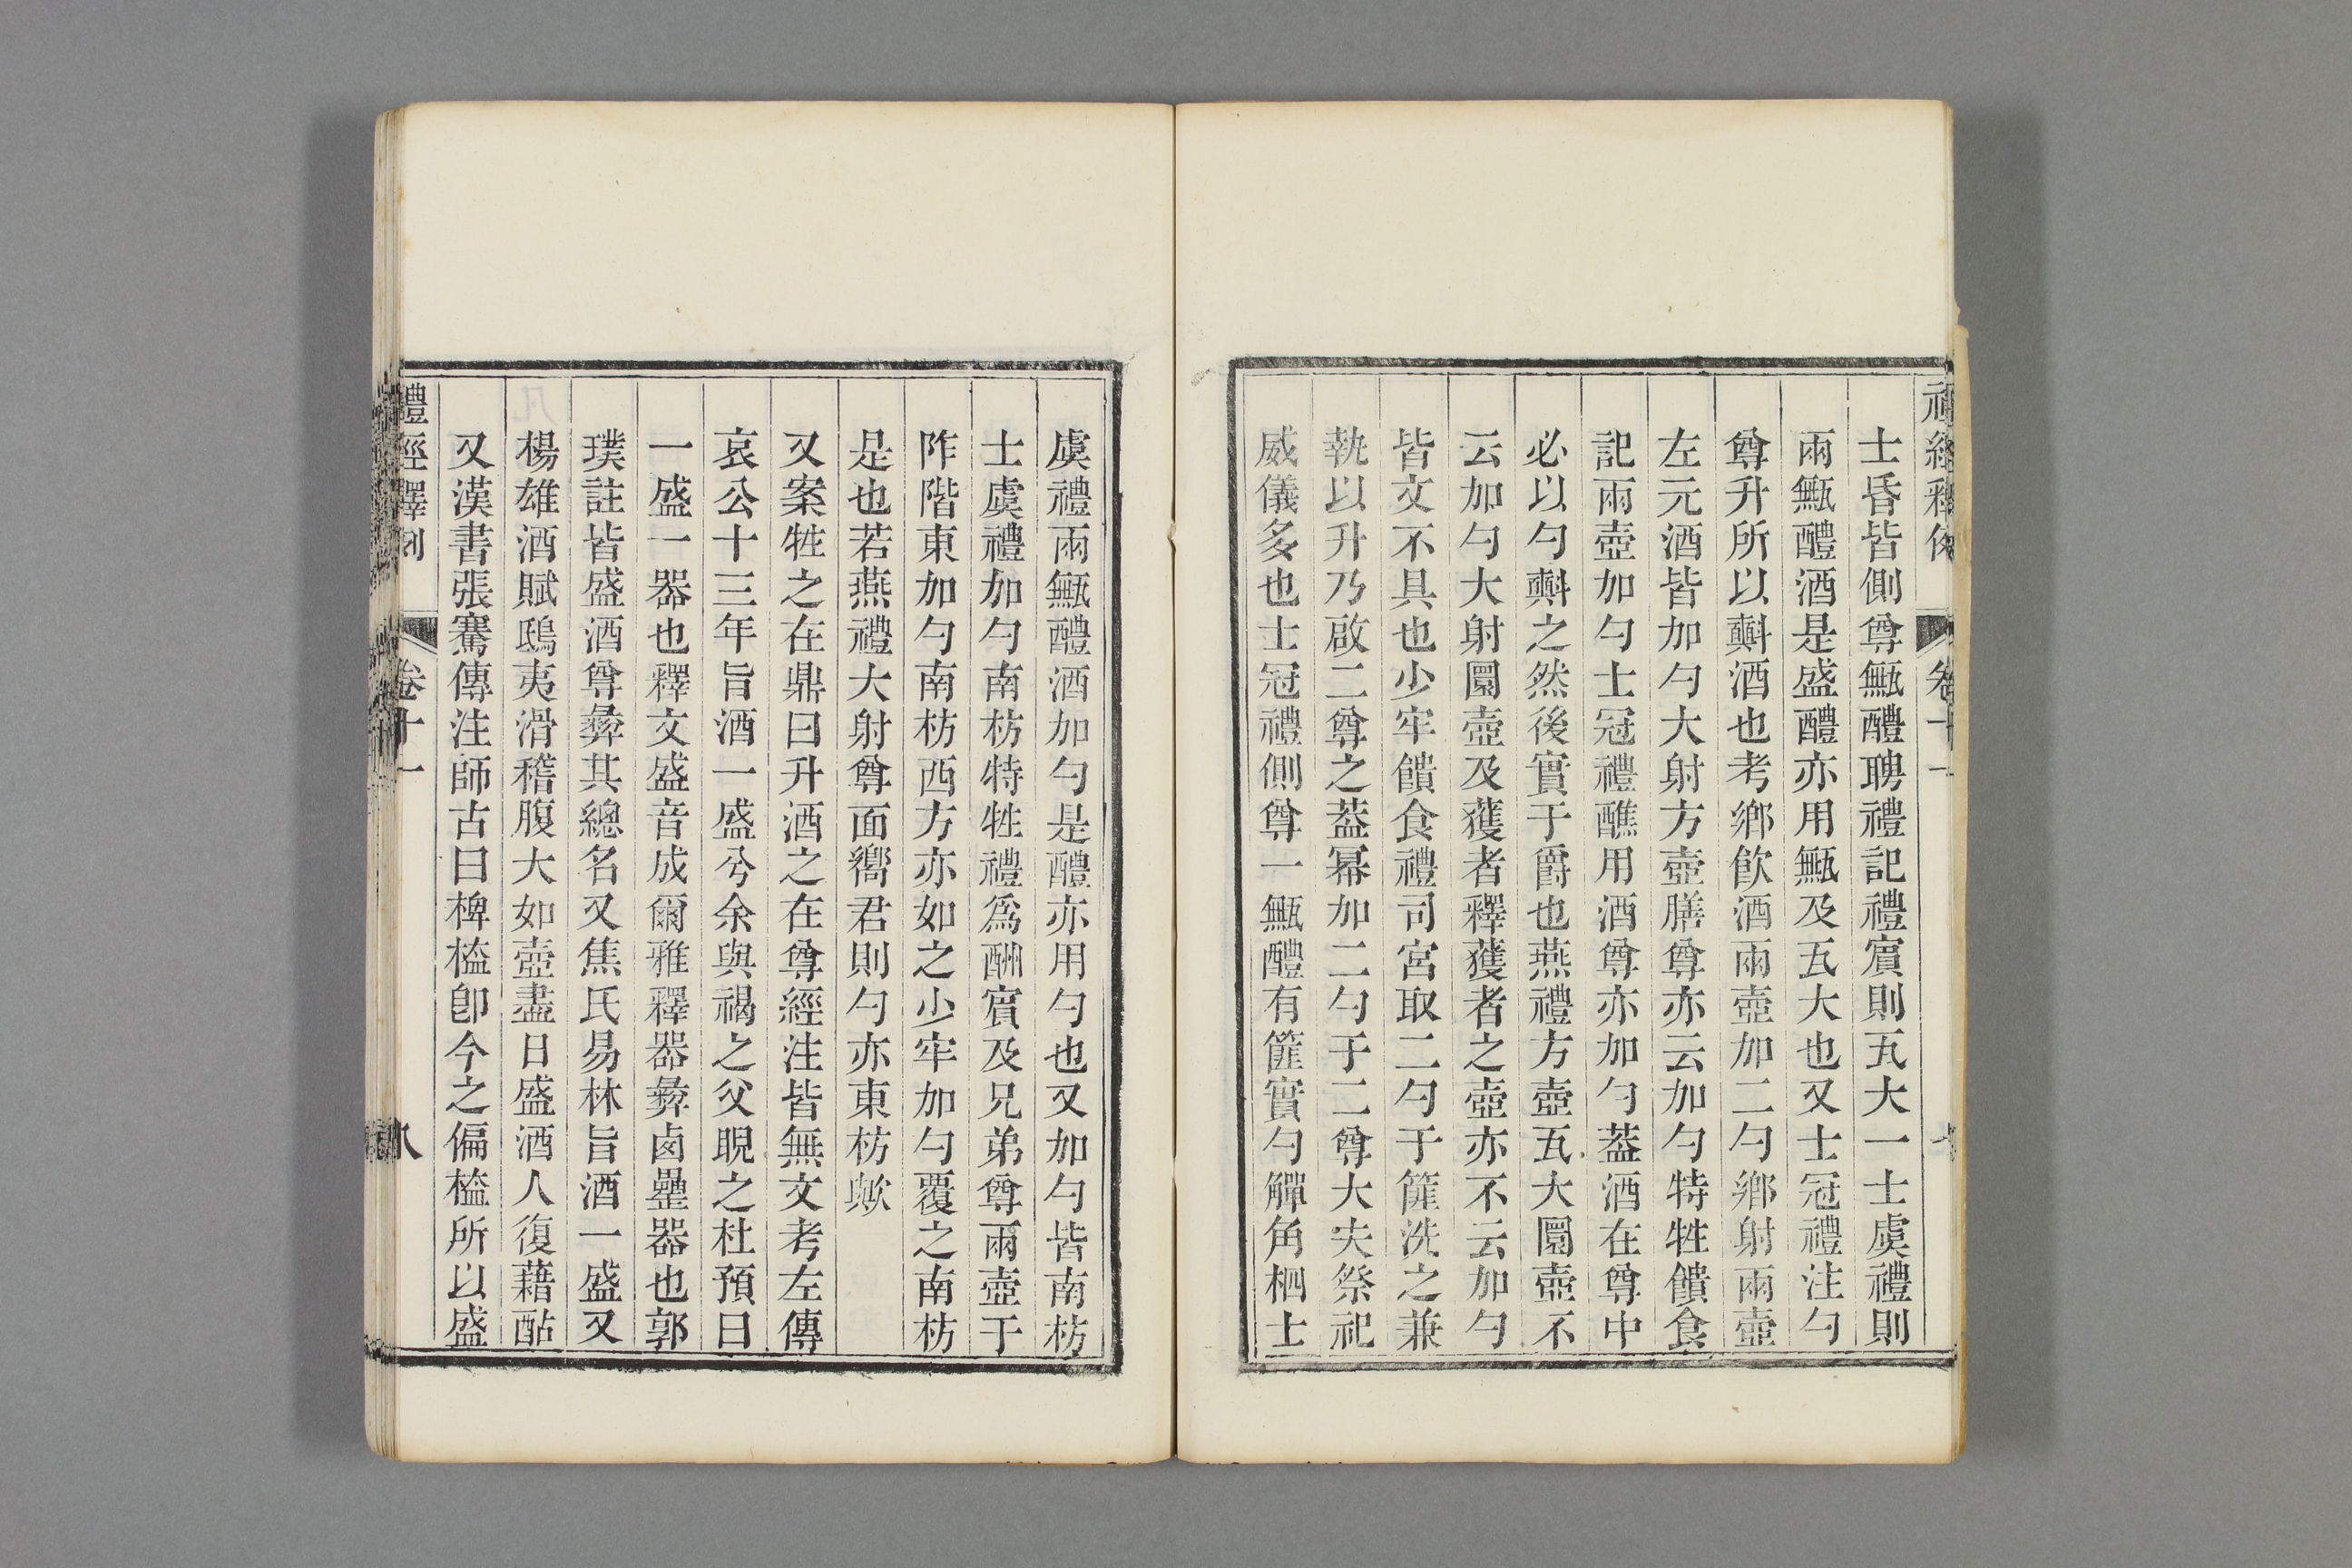 禮經釋例 卷十一
士昏皆側尊甒醴聘禮記禮賓則瓦大一士虞禮則
兩甒醴酒是盛醴亦用甒及瓦大也又士冠禮注勺
尊升所以㪺酒也考鄉飲酒兩壺加二勺鄉射兩壺
左元酒皆加勺大射方壺膳尊亦云加勺特牲饋食
記兩壺加勺士冠禮醮用酒尊亦加勺葢酒在尊中
必以勺㪺之然後實于爵也燕禮方壺瓦大圜壺不
云加勺大射圜壺及獲者釋獲者之壺亦不云加勺
皆文不具也少牢饋食禮司宮取二勺于篚洗之兼
執以升乃啟二尊之葢冪加二勺于二尊大夫祭祀
威儀多也士冠禮側尊一甒醴有篚實勺觶角柶士
虞禮兩甒醴酒加勺是醴亦用勺也又加勺皆南枋
士虞禮加勺南枋特牲禮爲酬賓及兄弟尊兩壺于
阼階東加勺南枋西方亦如之少牢加勺覆之南枋
是也若燕禮大射尊面嚮君則勺亦東枋歟
又案牲之在鼎曰升酒之在尊經注皆無文考左傳
哀公十三年旨酒一盛兮余與褐之父睨之杜預曰
一盛一器也釋文盛音成爾雅釋器彝卣罍器也郭
璞註皆盛酒尊彝其總名又焦氏易林旨酒一盛又
楊雄酒賦鴟夷滑稽腹大如壺盡日盛酒人復藉酤
又漢書張騫傳注師古曰椑榼卽今之偏榼所以盛
禮經釋例 卷十一 八